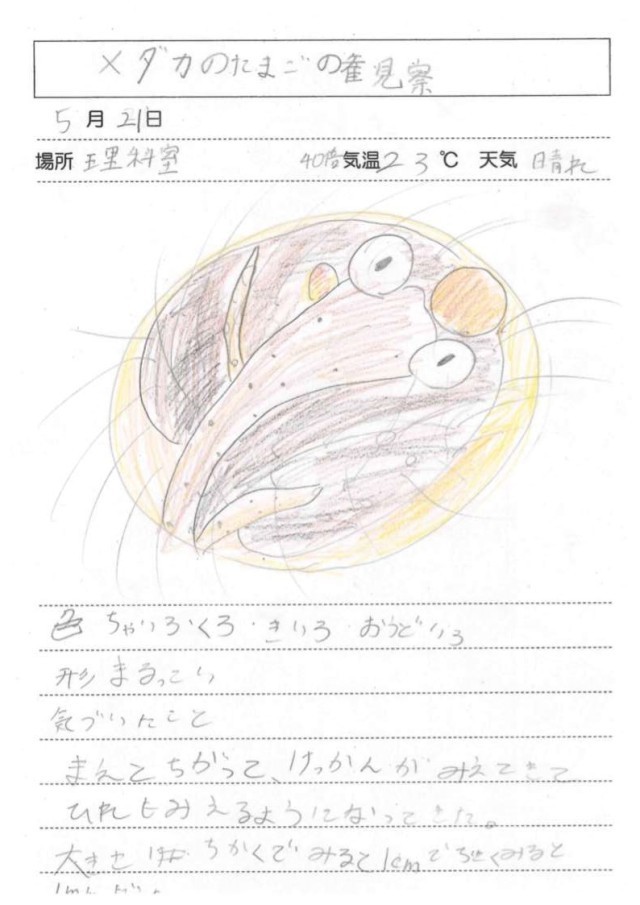 メダカのたまごの観察
5月21日
場所 理科室 40倍 気温23℃ 天気 晴れ
色 ちゃいろ・くろ・きいろ・おうどいろ
形 まるっこい
気づいたこと
まえとちがって、けっかんがみえてきて
ひれもみえるようになってきた。
大きさ ちかくでみると1cmで ちかくみると